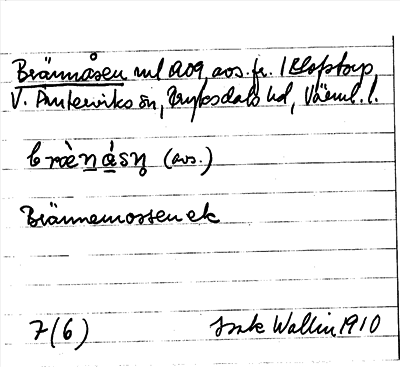 Brännåsen ml AO9, avs. fr. 1 Klopstorp,
V. Ämterviks sn, Fryksdals hd, Värml. l.
bræ̀nå̀sn (avs.)
Brännemossen ek
7(6) Isak Wallin 1910